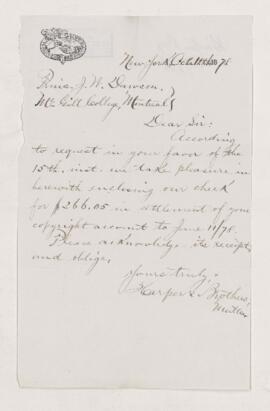 New York, Oct 18th 1878
Princ. J. W. Dawson,
McGill College, Montreal
Dear Sir:
According
to request in your favor of the
15th inst. we take pleasure in
herewith enclosing our check
for $266.05 in settlement of your
copyright account to June 11/78.
Please acknowledge its receipt
and oblige,
Yours truly,
Harper & Brothers,